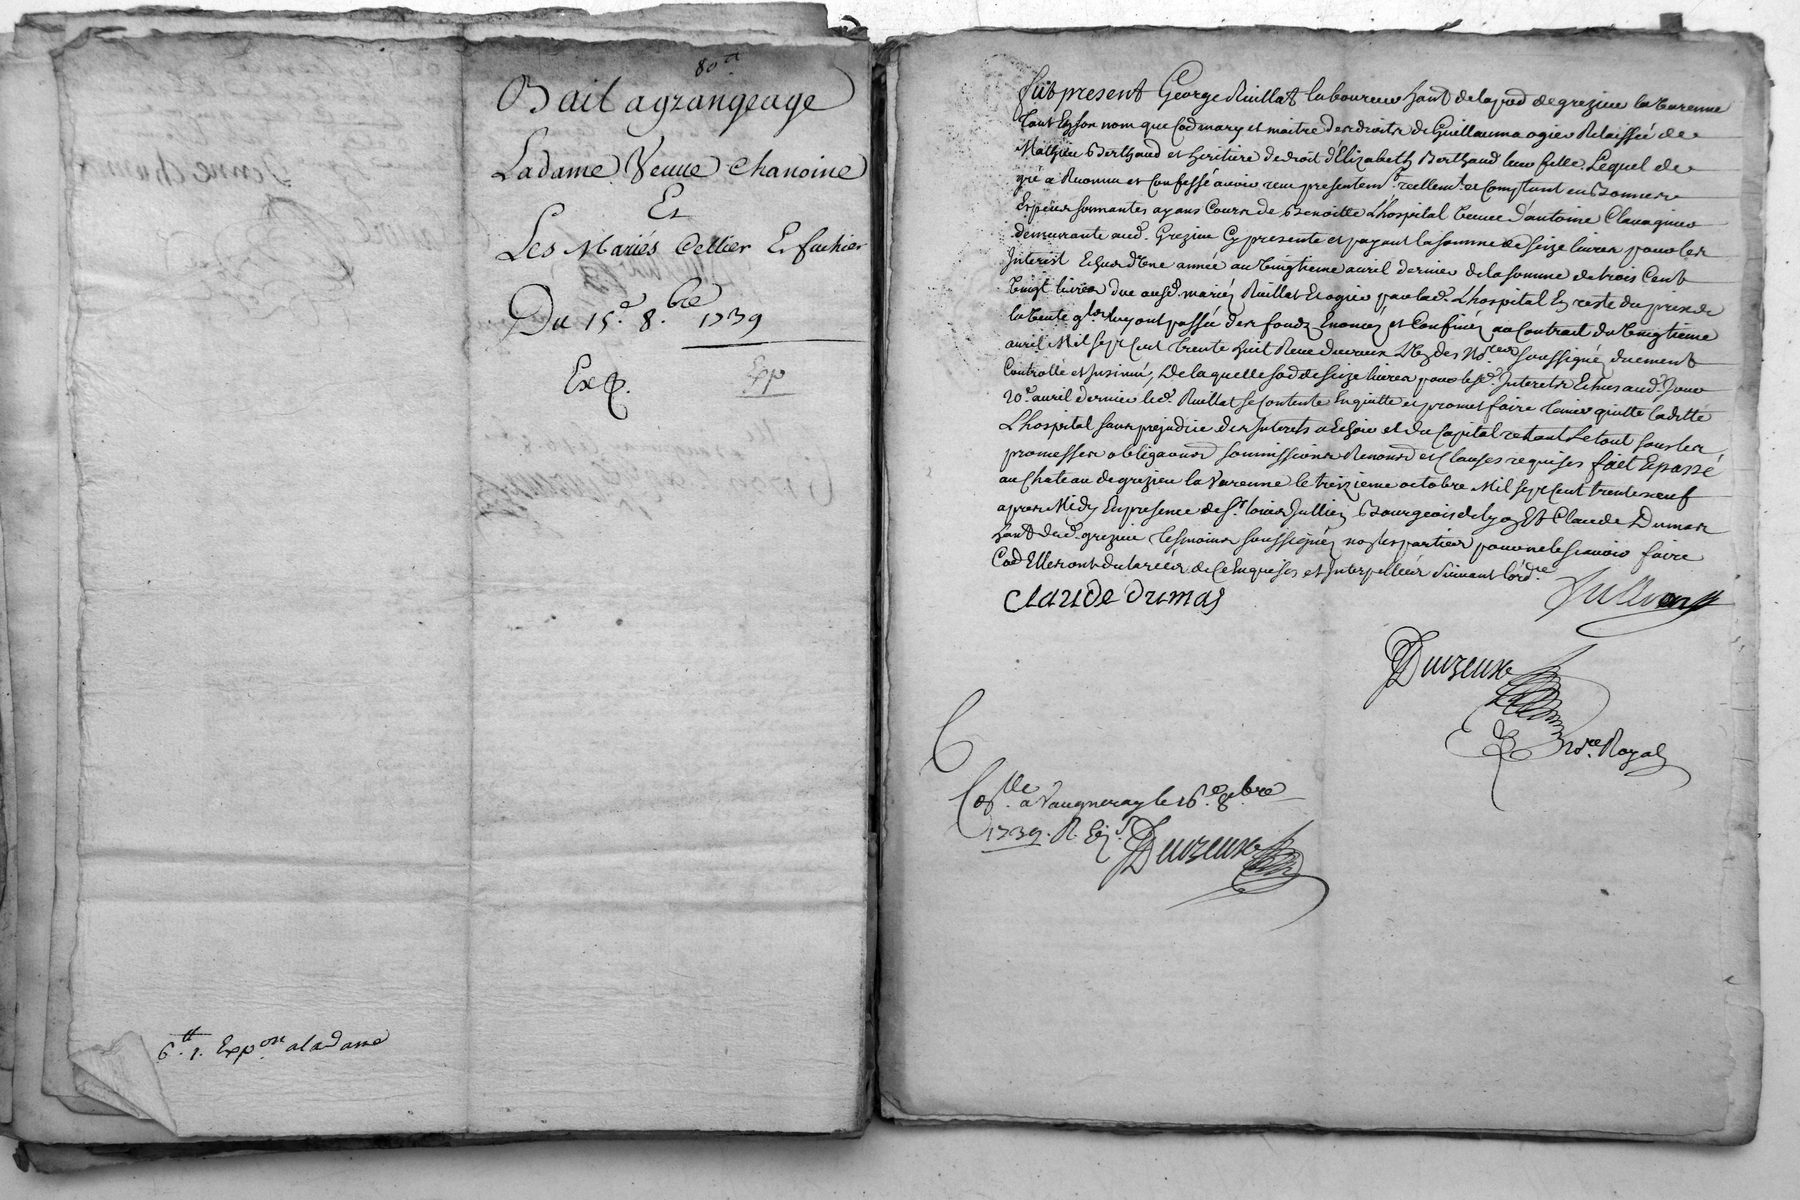 80tt
Bail a grangeage
La dame Veuve Chanoine
Et
Les Mariés Cellier Et fachier
Du 15e 8.bre 1739
Exp.
Exp
6tt. 1. Exp.on a la dame
Fut present George Ruillat laboureur hant de la p.d de grezieu la Varenne
tant En son nom que Cod mary et maitre des droits de Guillauma ogier Relaissée de
Mathieu Berthaud et heritiere de droit d'Elizabeth Berthaud leur fille. Lequel de
gré a Reconnu et Confessé avoir reçu presentemt. reellemt. et Comptant en Bonnes
Espèces sonnantes ayans Cours de Benoitte L'hospital veuve d'antoine Clavagnier
demeurante aud. Grezieu Cy presente et payant la somme de seize livres pour les
Interest Echus d'Une année au Vingtieme avril dernier de la somme de trois Cent
Vingt livres due ausd. mariés Ruillat Et ogier par lad. L'hospital En reste du prix de
la Vente qu'ils luy ont passée des fonds Enoncés et Confinés au Contract du Vingtieme
avril Mil sept Cent trente huit Receu Duvreux L'Un des Nores. soussigné duement
Controllé et Insinué, De laquelle sod de seize livres pour lesd. Interets Echus aud. Jour
20e. avril dernier led. Ruillat se Contente En quitte et promet faire tenir quitte laditte
L'hospital sans prejudice des Interets a Echoir et du Capital restant Le tout sous les
promesses obligaons soumissions Renond et Clauses requises fait Et passé
au Chateau de grezieu la Varenne le treizieme octobre Mil sept Cent trente neuf
apres Midy En presence de Sr. Jullien Bourgeois de Lyon Et Claude Dumas
hant dud. grezieu temoins soussignés non les parties pour ne le scavoir faire
Cod Elles ont declarées de Ce Enquises et Interpellées suivant l'ordre
Claude dumas
Jullien
Duvreux
Nore. Royal
C
Collé a Vaugneray le 16e. 8bre
1739. R.
Duvreux